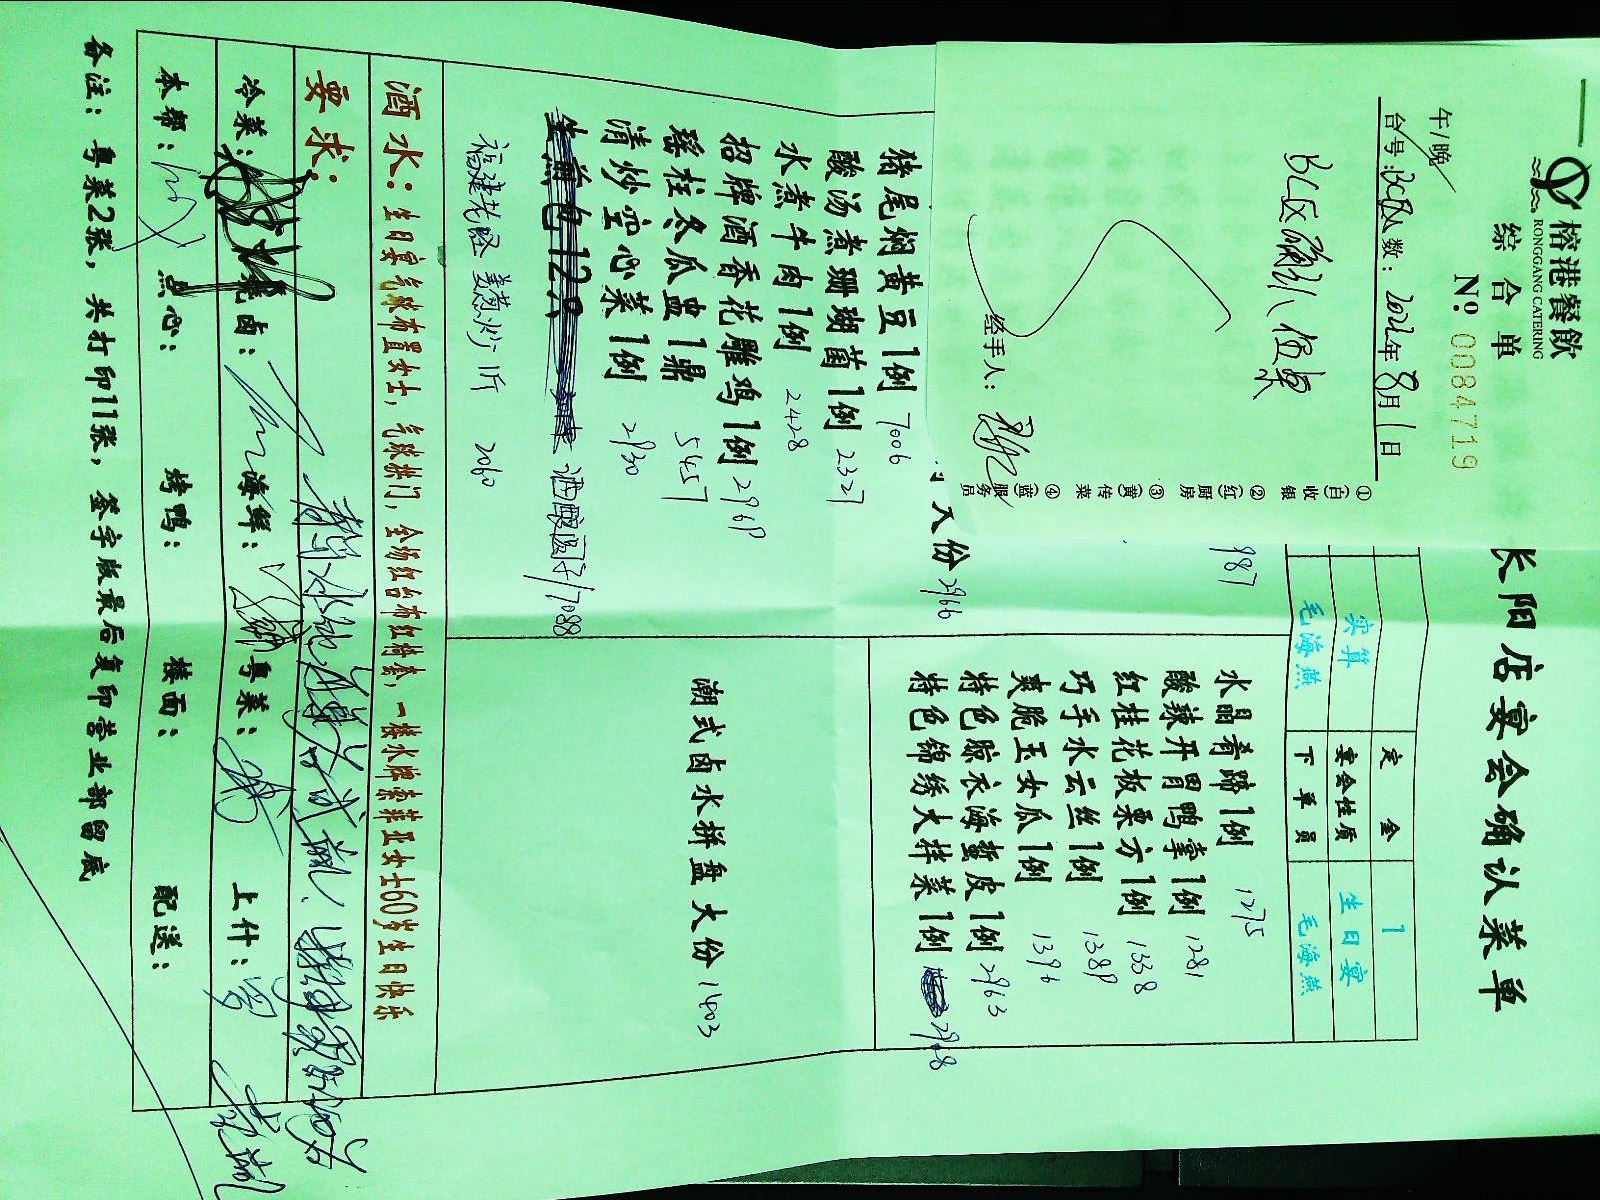 榕港餐飲
RONGGANG CATERING
综合单
№ 0084719
午/晚
台号: BC区 人数: 2022年8月1日
经手人:
①(白)收银 ②(红)厨房 ③(黄)传菜 ④(蓝)服务员
长阳店宴会确认菜单
定金 1
实算 宴会性质 生日宴
毛海燕 下单员 毛海燕
987
大份 2966
猪尾焖黄豆1例 7006
酸汤煮珊瑚菌1例 2327
水煮牛肉1例 2428
招牌酒香花雕鸡1例 2969
瑶柱冬瓜盅1鼎 5457
清炒空心菜1例 2930
生煎包12只 酒酿圆子/7088
福建花蛏 姜葱炒 1斤 2060
水晶肴蹄1例 1275
酸辣开胃鸭掌1例 1281
红桂花板栗方1例 1338
巧手水云丝1例 1389
爽脆玉女瓜1例 1396
特色晾衣海蜇皮1例 2963
特色锦绣大拌菜1例 2968
潮式卤水拼盘大份 1403
酒水: 生日宴气球布置女士, 气球拱门, 全场红台布红椅套, 一楼水牌索菲亚女士60岁生日快乐
要求:
冷菜: 烧卤: 海鲜: 粤菜: 上什:
本帮: 点心: 烤鸭: 楼面: 配送:
备注: 粤菜2张, 共打印11张, 签字版最后复印营业部留底